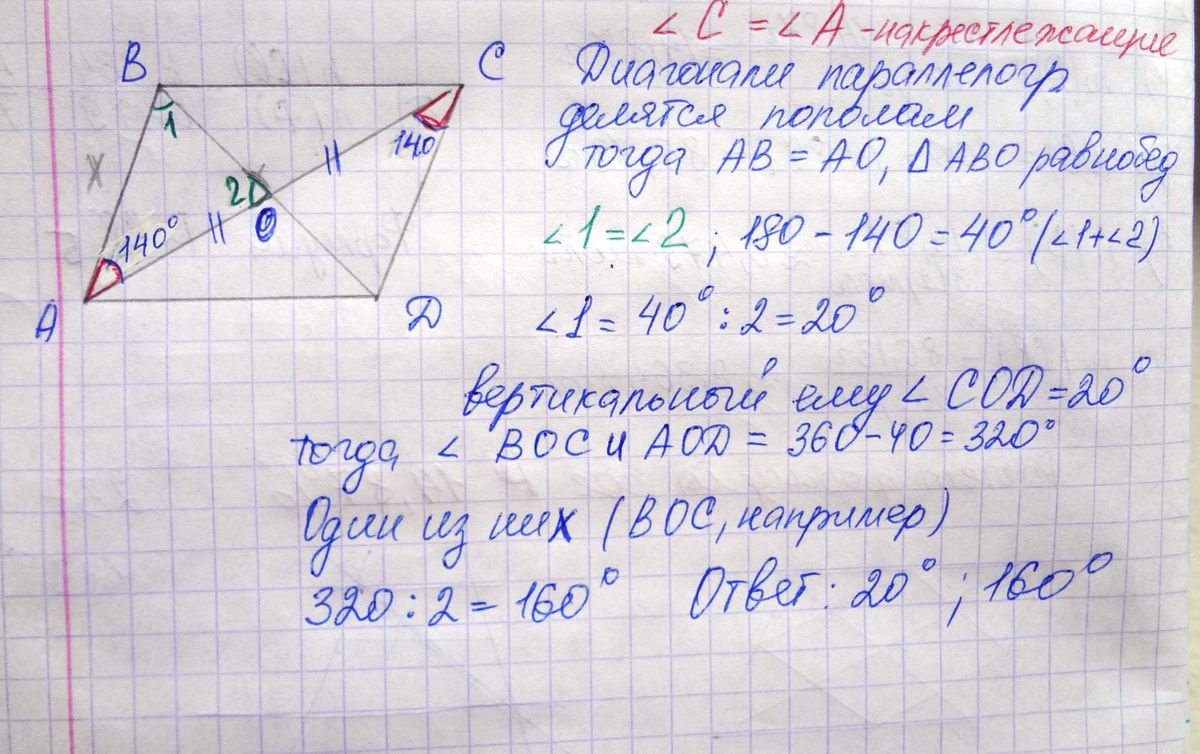 ∠ C = ∠ A - накрестлежащие
B
C
Диагонали параллелогр
делятся пополам
тогда AB = AO, Δ ABO равнобед
1
140
X
2
O
140°
∠1 = ∠2 ; 180 - 140 = 40° (∠1+∠2)
A
D
∠1 = 40° : 2 = 20°
вертикальный ему ∠ COD = 20°
тогда ∠ BOC и AOD = 360-40 = 320°
Один из них (BOC, например)
320 : 2 = 160°
Ответ: 20° ; 160°